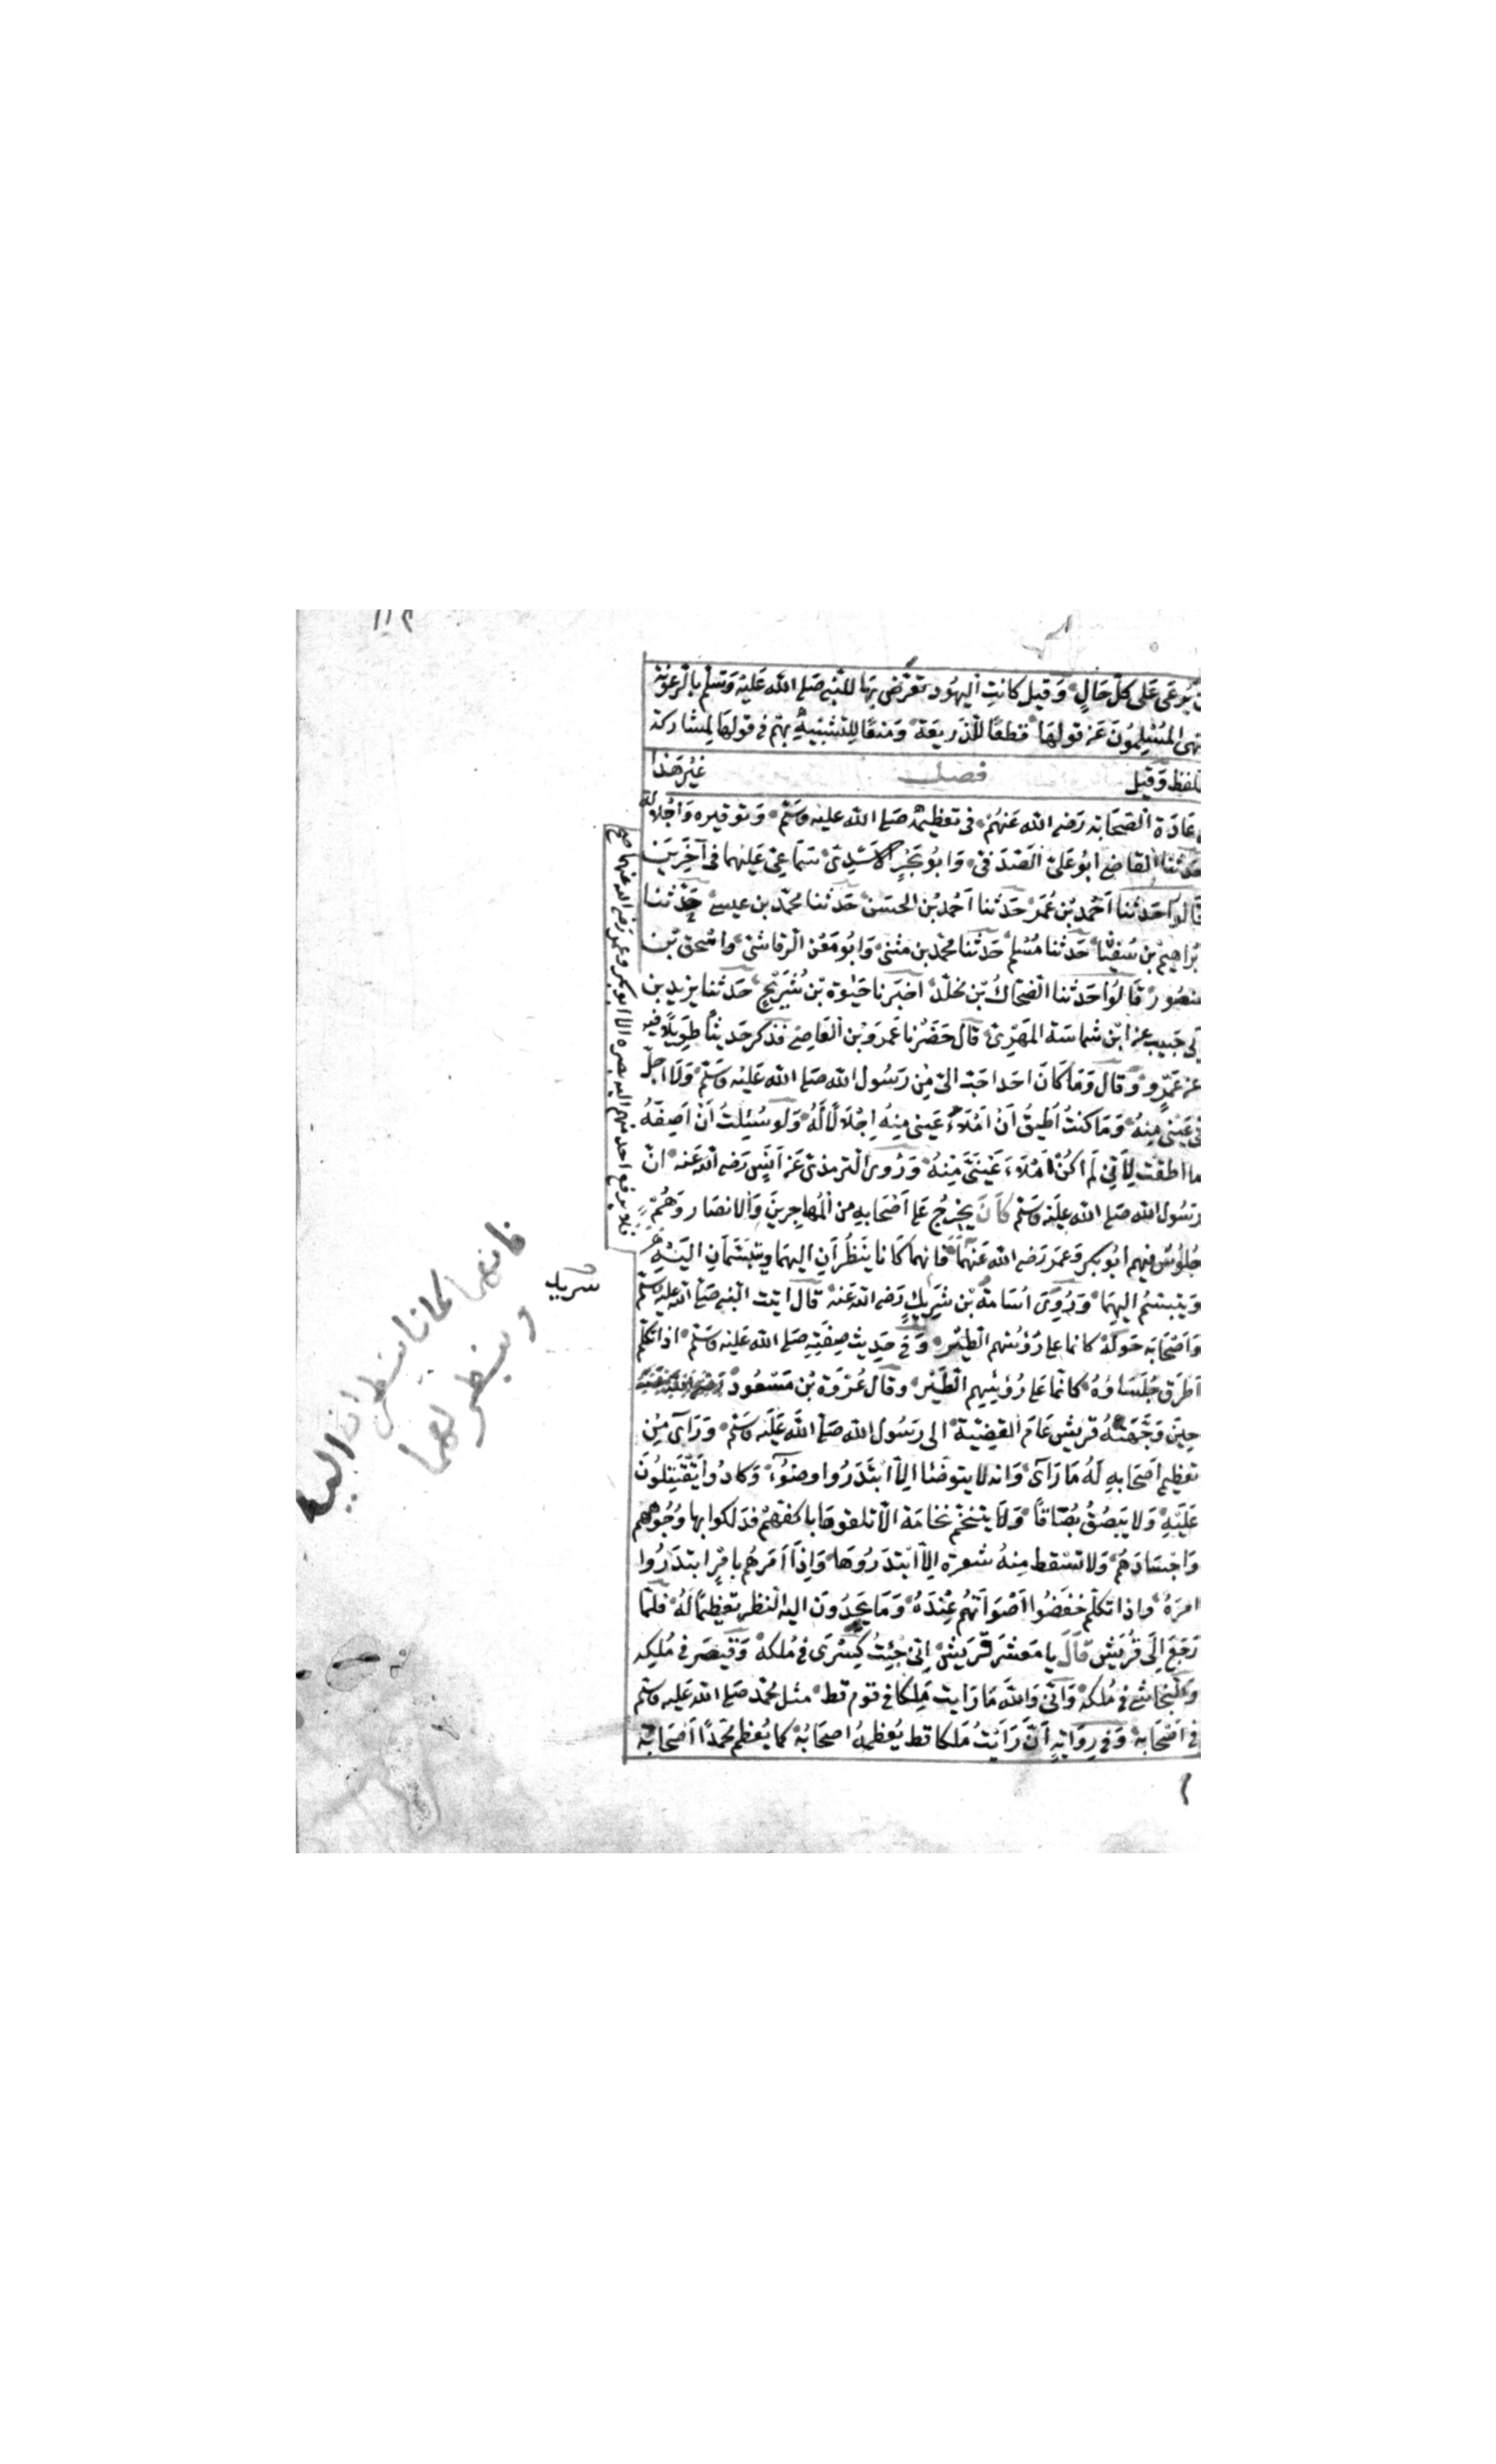 يُرعى عَلى كلّ حَالٍ وَقيل كانتِ اليهُود تعَرّض بهَا للنّبي صَلى الله عَليْه وَسَلم بالرعونة
المُسْلِمُونَ عَن قولهَا قطعًا للذّريعَة وَمنعًا للِتشبيهِ بهَم في قولهَا لمشاركة
للفظ وَقيل فصل غيْر هَذا
عَادَة الصّحَابة رَضى الله عَنهُمْ في تعَظيمه صَلى الله عَليه وسَلم وَتوقيره وَاجْلاله
حَدثنا القاضي ابُو عَلى الصّدَفىّ وَابُو بَحْرٍ الاسَدِىّ سَمَاعي عَليْهما في آخَرِينَ
قَالوُا حَدثنا اَحْمَد بْنُ عُمَرَ حَدثنا اَحْمدُ بْن الحسَن حَدثنا محمّد بن عيسى حَدثنا
ابراهِيمُ بن سُفيٰن حَدثنا مُسْلم حَدثنا محمّد بن مثنى وَابُو مَعْن الرقاشي وَاسْحق بْن
منصُور قَالوُا حَدثنا الضحّاك بن مخلد اَخبَرنا حَيْوة بْن شُرَيْحٍ حَدثنا يزيد بن
ابى حَبيب عن ابْن شماسَة المَهْرِىّ قَال حَضَرْنا عَمرَو بْن العَاصِي فذكر حَديثًا طِوَيلًا فيه
عَن عَمْرٍو وَقَال وَمَا كَانَ احَد احَبّ الىّ مِن رَسُول الله صَلى الله عَليْه وَسَلم وَلَا اجلّ
في عَيْني مِنهُ وَمَا كنتُ اُطيقُ اَنْ اَمْلَاءَ عَيني مِنهُ اِجْلَالًا لَهُ وَلَو سُئِلتُ اَنْ اَصِفَهُ
ما اطقت لِاَني لَم اكنْ اَمْلَاءَ عَيْنَىّ مِنهُ وَرَوى الترمذي عَن اَنَسٍ رَضى الله عَنه انّ
رَسُول الله صَلى الله عَليْه وَسَلم كَانَ يَخرُجُ عَلى اَصْحَابهِ مِن المُهَاجِرينَ وَالانصَار وَهُمْ
جُلوُسٌ فيهِم ابُو بَكرٍ وَعمَر رَضى الله عَنهمَا فَانهما كَانا ينَظُرَانِ اليهمَا وَيتبَسّمَانِ اليْهِ
وَيتبسّمُ اليهِمَا وَرَوَى اُسَامَة بْن شَريكٍ رَضى الله عَنهُ قَال اتيت النّبي صَلى الله عَليه وسَلم
وَاَصْحَابه حَولَه كانما عَلى رؤسهم الطيْر وَفي حَديث صِفَتِهِ صَلى الله عَليْه وَسَلم اذا تكلم
اَطْرَق جُلَسَاؤهُ كانما عَلى رُؤسِهِم الطيْر وقَال عُرْوَة بْن مَسْعُود
حِينَ وَجّهَتْهُ قرَيش عَامَ القضِيّة الى رَسُول الله صَلى الله عَليه وسَلم وَرَآى مِن
تعظِيم اَصْحَابهِ لَهُ مَا رَآى وَانه لا يتوضّا الّا ابْتَدَرُوا وضوُءَهُ وَكادُوا يَقْتتِلُونَ
عَليْهِ وَلا يَبصُقُ بُصَاقًا وَلَا يتنخّم نخامَة الّا تلقوهَا باكفّهم فَدَلكوا بها وُجُوهَهم
وَاجْسَادَهُمْ وَلا تسْقط مِنهُ شَعرة الّا ابْتدَرُوهَا وَاذَا اَمَرَهُم باَمْرٍ ابتدَرُوا
امرَهُ وَاذا تكلّم خَفَضُوا اَصْوَاتَهُم عِنْدَهُ وَمَا يُحِدُّونَ اليه النظر تعْظِيمًا لَهُ فلمّا
رَجَعَ اِلَى قُرَيْش قَالَ يا مَعْشرَ قرَيْش اِنىّ جِئتُ كِسْرَى في مُلكه وَقيْصَر في مُلكِه
وَالنجَاشِي في مُلكِه وَانىّ وَاللهِ مَا رَايت مَلِكًا في قوم قط مثل محمّد صَلى الله عَليه وسَلم
في اَصْحَابه وَفي رِوَايةٍ اِنْ رَاَيْتُ مَلكا قط يُعَظمهُ اصحَابُهُ كما يُعَظم محَمّدًا اَصْحَابُه
فلا يرفع احد منهم اليه بصره الا ابو بكر وعمر رضى الله عنهما صح
شريك
فانهما كانا ينظران اليه
وينظر اليهما